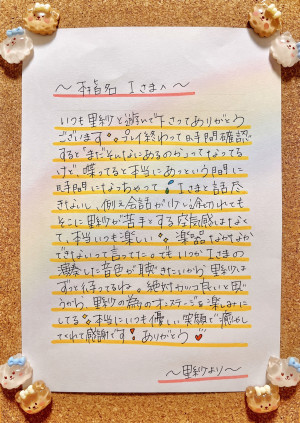 ～本指名 Iさまへ～
いつも里紗と遊んで下さってありがとう
ございます。プレイ終わって時間確認
すると「まだそんなにあるのか」ってなってる
けど、喋ってると本当にあっという間に
時間になっちゃって Iさまと話尽
きないし、例え会話が少し途切れても
そこに里紗が苦手とする居心地感はなく
て、本当いつも楽しい 楽器もなかなか
できないって言ってた。でもいつかIさまの
演奏した音色が聴きたいから、里紗は
ずっと待ってるね。絶対カッコ良いと思
うから、里紗の為のオンステージを楽しみに
してる 本当にいつも優しい笑顔で癒やし
てくれて感謝です！ありがとう
～里紗より～